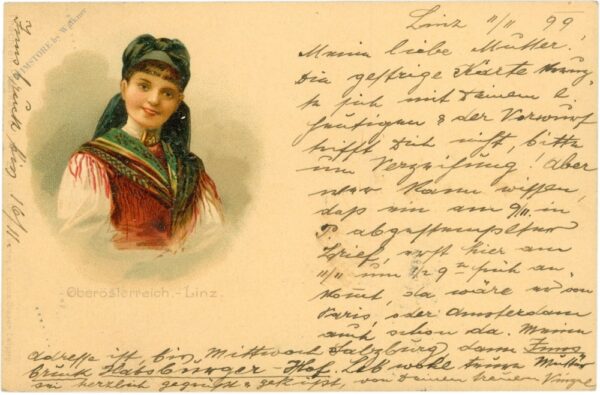 Linz 11/11 99.
Meine liebe Mutter!
Die gestrige Karte kreuz-
te sich mit Deinem l.
heutigen & der Vorwurf
trifft Dich nicht, bitte
um Verzeihung! Aber
wer kann wissen,
daß ein am 9/11 in
P. abgestempelter
Brief, erst hier am
11/11 um 1/2 9 früh an-
komt, da wäre er von
Paris, oder Amsterdam
auch schon da. Meine
Adresse ist, bis Mittwoch Salzburg, dann Inns
bruck Habsburger-Hof. Leb wohl teure Mutter
sei herzlich gegrüßt & geküßt, von Deinem treuen
Oberösterreich.- Linz.
Innsbruck bis 16/11.